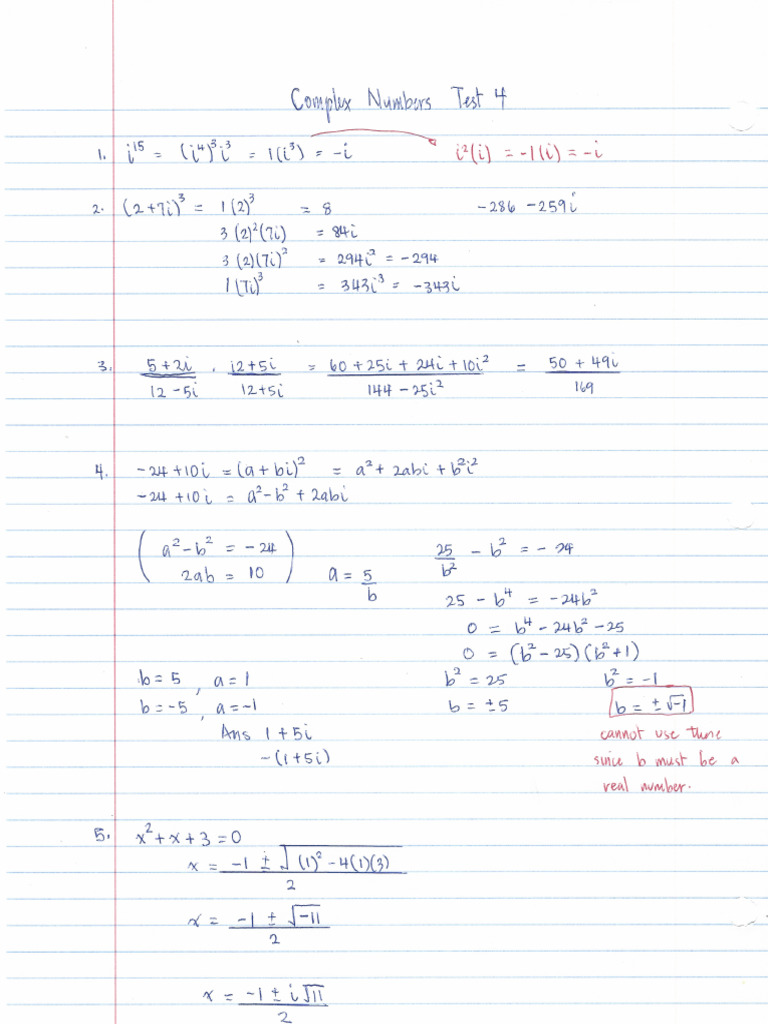 Complex Numbers Test 4
1. i^15 = (i^4)^3 i^3 = 1(i^3) = -i i^2(i) = -1(i) = -i
2. (2+7i)^3 = 1(2)^3 = 8 -286 -259i
3(2)^2(7i) = 84i
3(2)(7i)^2 = 294i^2 = -294
1(7i)^3 = 343i^3 = -343i
3. (5+2i)/(12-5i) · (12+5i)/(12+5i) = (60+25i+24i+10i^2)/(144-25i^2) = (50+49i)/169
4. -24+10i = (a+bi)^2 = a^2+2abi+b^2i^2
-24+10i = a^2-b^2+2abi
(a^2-b^2 = -24 25/b^2 - b^2 = -24
2ab = 10) a = 5/b
25 - b^4 = -24b^2
0 = b^4-24b^2-25
0 = (b^2-25)(b^2+1)
b=5, a=1 b^2=25 b^2=-1
b=-5, a=-1 b=±5 b=±√-1
Ans 1+5i cannot use these
-(1+5i) since b must be a
real number.
5. x^2+x+3=0
x = (-1 ± √((1)^2-4(1)(3)))/2
x = (-1 ± √-11)/2
x = (-1 ± i√11)/2